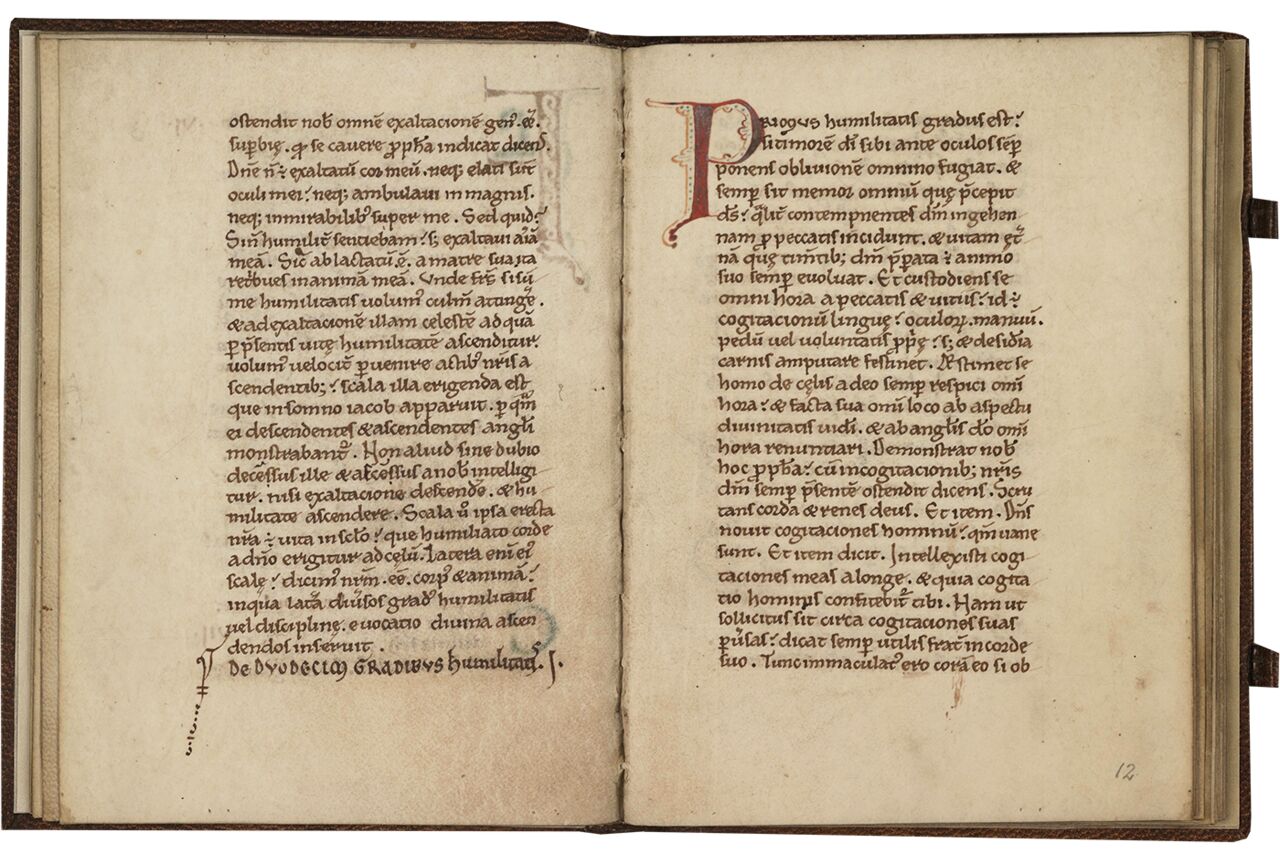 ostendit nob̄ omnē exaltacionē gen᾿. eē.
suꝑbię. qđ se cauere ꝓph̄a indicat dicens.
Dn̄e n̄ ÷ exaltatū cor meū. neq; elati sūt
oculi mei: neq; ambulaui in magnis.
neq; in mirabilib᾿ super me. Sed quid?
Si n̄ humilit̄ sentiebam: s; exaltaui aīā
meā. Sic̄ ablactatū ē. a matre sua ita
retⁱbues in animam meā. Vnde fr̄s si sū
me humilitatis uolum᾿ culm̄ attingē.
& ad exaltacionē illam celestē ad quā
ꝑ p̄sentis uitę humilitatē ascenditur.
uolum᾿ uelocit̄ ꝑuenire actib᾿ nr̄is a
scendentib;: scala illa erigenda est
que in somno iacob apparuit. ꝑ qm̄
ei descendentes & ascendentes angl̄i
monstrabant᾿. Non aliud sine dubio
decessus ille & ascessus a nob̄ intelligi
tur. nisi exaltacione descendē. & hu
militate ascendere. Scala u᷎ ipsa erecta
nr̄a ÷ uita in sclo: que humiliato corde
a dn̄o erigitur ad cęlū. Latera eni᷎ ei᾿
scalę: dicim᾿ nrm̄. eē. corp᾿ & animā:
in qua lat̄a diu᷎sos grad᾿ humilitatis
uel discipline. euocatio diuina ascen
dendos inseruit.
De DVODECIM GRADIBVS humilitatis. I.
PRIMVS humilitatis gradus est:
si timorem dī sibi ante oculos semꝑ
ponens obliuionē omnino fugiat. &
semꝑ sit memor omniū quę p̄cepit
ds̄: qͣlit̄ contempnentes dm̄ in gehen
nam ꝓ peccatis incidunt. & uitam et᷎
nā quę tim̄tib; dm̄ p̄ꝑata ÷ animo
suo semꝑ euoluat. Et custodiens se
omni hora a peccatis & uitiis: id ÷
cogitacionū linguę: oculoꝝ. manuū.
pedū uel uoluntatis ꝓprię: s; & desidia
carnis amputare festinet. Æstimet se
homo de cęlis a deo semꝑ respici omī
hora: & facta sua omī loco ab aspectu
diuinitatis uidī. & ab angl̄is dō omī
hora renuntiari. Demonstrat nob̄
hoc ꝓph̄a: cū in cogitacionib; nr̄is
dm̄ semꝑ p̄sentē ostendit dicens. Scru
tans corda & renes deus. Et item. Dn̄s
nouit cogitaciones hominū: qm̄ uane
sunt. Et item dicit. Intellexisti cogi
taciones meas a longe. & quia cogita
tio hominis confitebit᾿ tibi. Nam ut
sollicitus sit circa cogitaciones suas
ꝑu᷎sas: dicat semꝑ utilis frat̄ in corde
suo. Tunc immaculat᾿ ero corā eo si ob
12